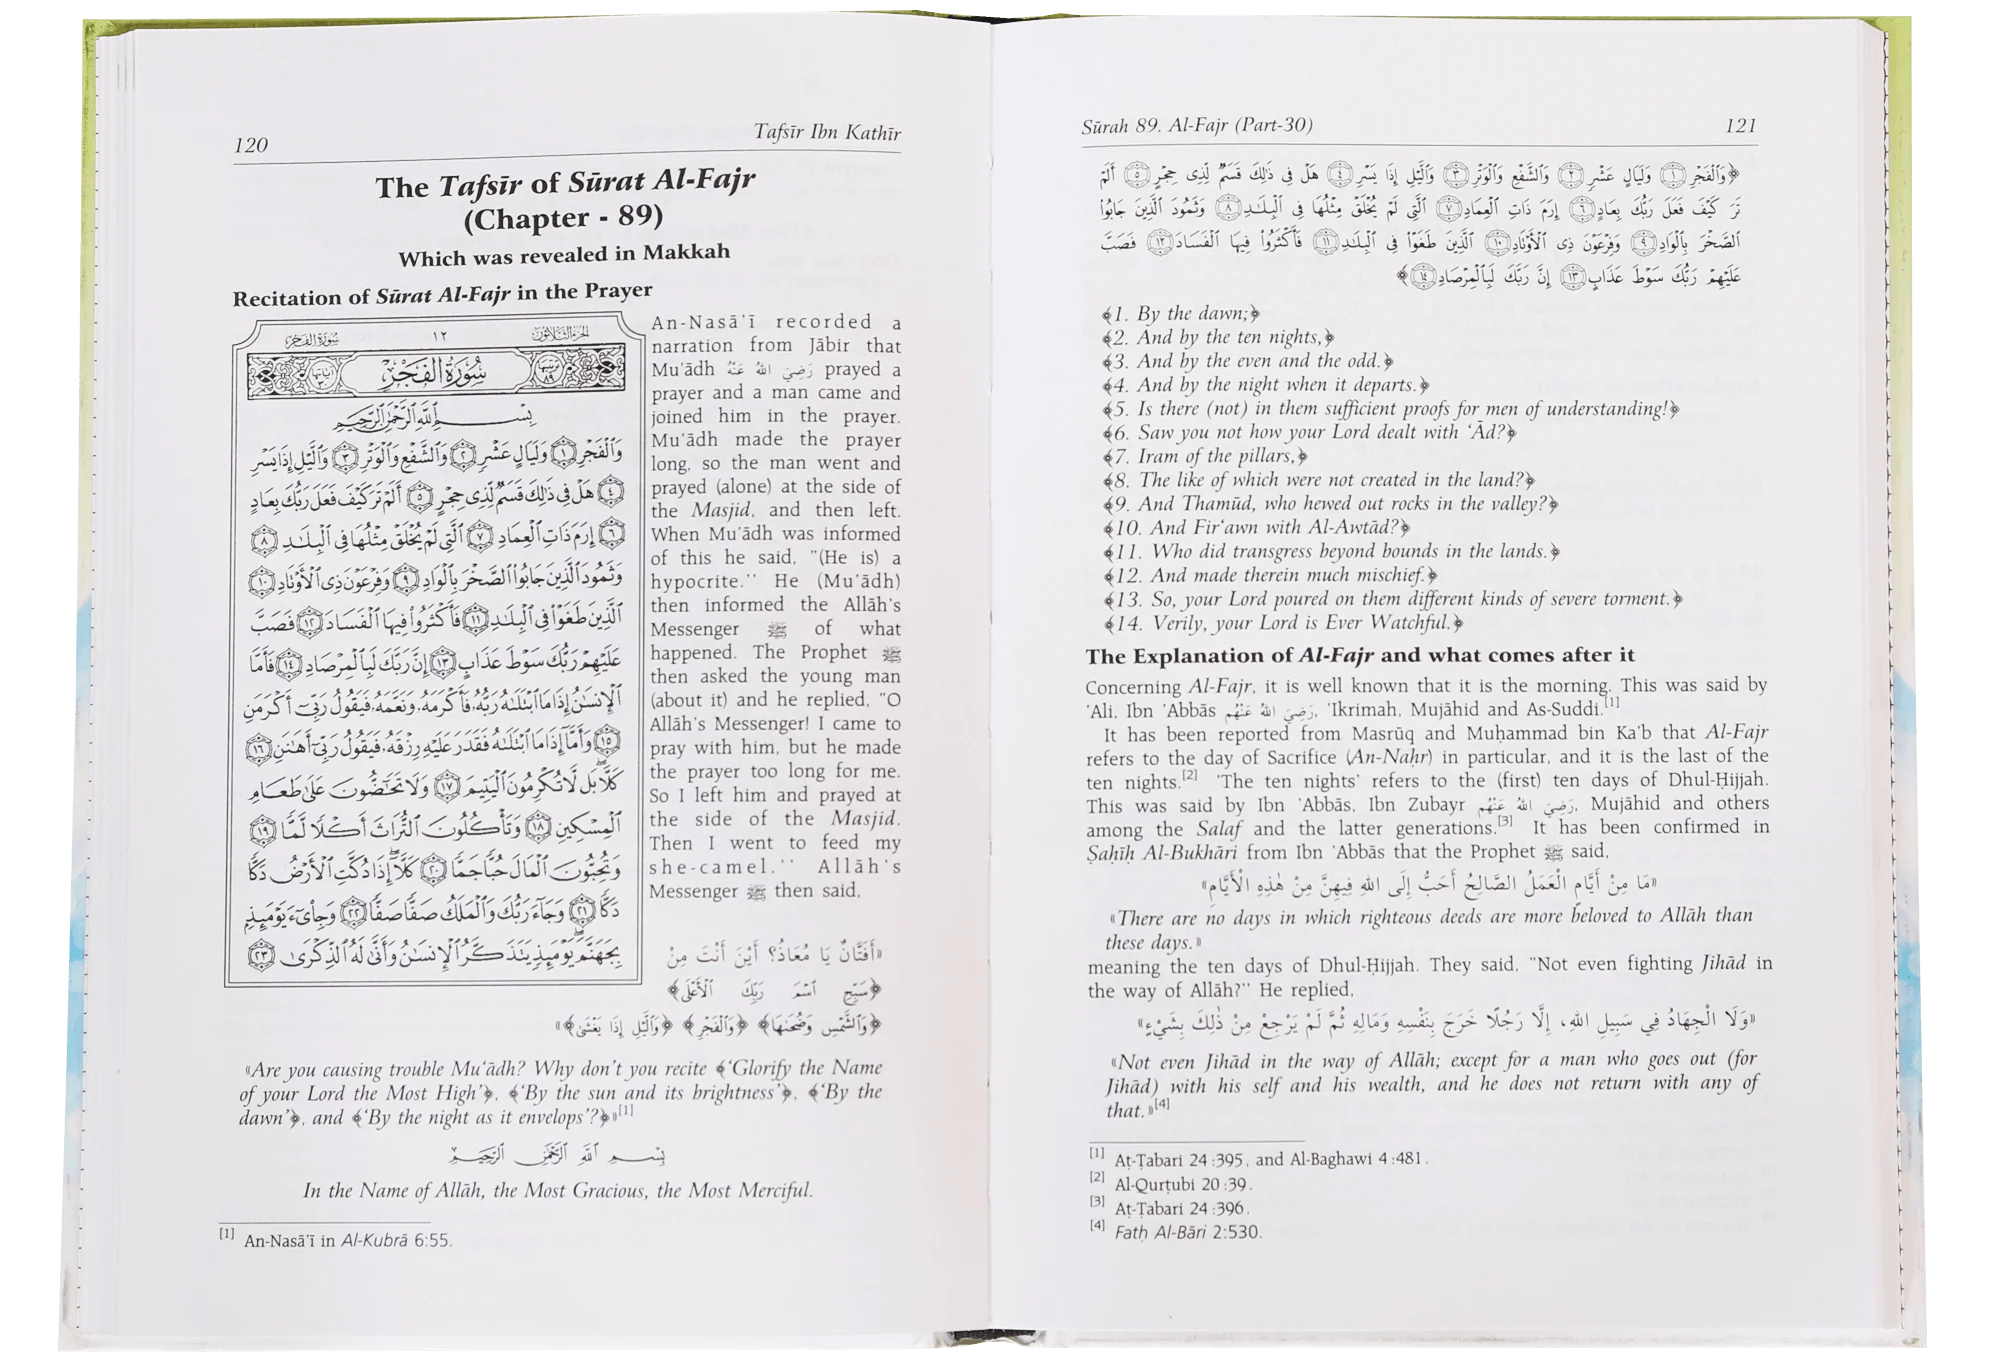 120
Tafsīr Ibn Kathīr
The Tafsīr of Sūrat Al-Fajr
(Chapter - 89)
Which was revealed in Makkah
Recitation of Sūrat Al-Fajr in the Prayer
سُورَةُ الفَجْرِ ١٢ الجُزءُ الثَّلَاثُونَ
سُورَةُ الْفَجْرِ
بِسْمِ ٱللَّهِ ٱلرَّحْمَٰنِ ٱلرَّحِيمِ
وَٱلْفَجْرِ ﴿١﴾ وَلَيَالٍ عَشْرٍ ﴿٢﴾ وَٱلشَّفْعِ وَٱلْوَتْرِ ﴿٣﴾ وَٱلَّيْلِ إِذَا يَسْرِ
﴿٤﴾ هَلْ فِى ذَٰلِكَ قَسَمٌ لِّذِى حِجْرٍ ﴿٥﴾ أَلَمْ تَرَ كَيْفَ فَعَلَ رَبُّكَ بِعَادٍ
﴿٦﴾ إِرَمَ ذَاتِ ٱلْعِمَادِ ﴿٧﴾ ٱلَّتِى لَمْ يُخْلَقْ مِثْلُهَا فِى ٱلْبِلَٰدِ ﴿٨﴾
وَثَمُودَ ٱلَّذِينَ جَابُوا۟ ٱلصَّخْرَ بِٱلْوَادِ ﴿٩﴾ وَفِرْعَوْنَ ذِى ٱلْأَوْتَادِ ﴿١٠﴾
ٱلَّذِينَ طَغَوْا۟ فِى ٱلْبِلَٰدِ ﴿١١﴾ فَأَكْثَرُوا۟ فِيهَا ٱلْفَسَادَ ﴿١٢﴾ فَصَبَّ
عَلَيْهِمْ رَبُّكَ سَوْطَ عَذَابٍ ﴿١٣﴾ إِنَّ رَبَّكَ لَبِٱلْمِرْصَادِ ﴿١٤﴾ فَأَمَّا
ٱلْإِنسَٰنُ إِذَا مَا ٱبْتَلَىٰهُ رَبُّهُۥ فَأَكْرَمَهُۥ وَنَعَّمَهُۥ فَيَقُولُ رَبِّىٓ أَكْرَمَنِ
﴿١٥﴾ وَأَمَّآ إِذَا مَا ٱبْتَلَىٰهُ فَقَدَرَ عَلَيْهِ رِزْقَهُۥ فَيَقُولُ رَبِّىٓ أَهَٰنَنِ ﴿١٦﴾
كَلَّا ۖ بَل لَّا تُكْرِمُونَ ٱلْيَتِيمَ ﴿١٧﴾ وَلَا تَحَٰٓضُّونَ عَلَىٰ طَعَامِ
ٱلْمِسْكِينِ ﴿١٨﴾ وَتَأْكُلُونَ ٱلتُّرَاثَ أَكْلًا لَّمًّا ﴿١٩﴾
وَتُحِبُّونَ ٱلْمَالَ حُبًّا جَمًّا ﴿٢٠﴾ كَلَّآ ۖ إِذَا دُكَّتِ ٱلْأَرْضُ دَكًّا
دَكًّا ﴿٢١﴾ وَجَآءَ رَبُّكَ وَٱلْمَلَكُ صَفًّا صَفًّا ﴿٢٢﴾ وَجِا۟ىٓءَ يَوْمَئِذٍۭ
بِجَهَنَّمَ ۚ يَوْمَئِذٍ يَتَذَكَّرُ ٱلْإِنسَٰنُ وَأَنَّىٰ لَهُ ٱلذِّكْرَىٰ ﴿٢٣﴾
An-Nasā'ī recorded a
narration from Jābir that
Mu'ādh رَضِيَ اللهُ عَنْهُ prayed a
prayer and a man came and
joined him in the prayer.
Mu'ādh made the prayer
long, so the man went and
prayed (alone) at the side of
the Masjid, and then left.
When Mu'ādh was informed
of this he said, "(He is) a
hypocrite." He (Mu'ādh)
then informed the Allāh's
Messenger ﷺ of what
happened. The Prophet ﷺ
then asked the young man
(about it) and he replied, "O
Allāh's Messenger! I came to
pray with him, but he made
the prayer too long for me.
So I left him and prayed at
the side of the Masjid.
Then I went to feed my
she-camel." Allāh's
Messenger ﷺ then said,
«أَفَتَّانٌ يَا مُعَاذُ؟ أَيْنَ أَنْتَ مِنْ
﴿سَبِّحِ ٱسْمَ رَبِّكَ ٱلْأَعْلَى﴾
﴿وَٱلشَّمْسِ وَضُحَىٰهَا﴾ ﴿وَٱلْفَجْرِ﴾ ﴿وَٱلَّيْلِ إِذَا يَغْشَىٰ﴾»
«Are you causing trouble Mu'ādh? Why don't you recite ﴾'Glorify the Name
of your Lord the Most High'﴿, ﴾'By the sun and its brightness'﴿, ﴾'By the
dawn'﴿, and ﴾'By the night as it envelops'?﴿»[1]
بِسْمِ ٱللَّهِ ٱلرَّحْمَٰنِ ٱلرَّحِيمِ
In the Name of Allāh, the Most Gracious, the Most Merciful.
[1] An-Nasā'ī in Al-Kubrā 6:55.
Sūrah 89. Al-Fajr (Part-30)
121
﴿وَٱلْفَجْرِ ﴿١﴾ وَلَيَالٍ عَشْرٍ ﴿٢﴾ وَٱلشَّفْعِ وَٱلْوَتْرِ ﴿٣﴾ وَٱلَّيْلِ إِذَا يَسْرِ ﴿٤﴾ هَلْ فِى ذَٰلِكَ قَسَمٌ لِّذِى حِجْرٍ ﴿٥﴾ أَلَمْ
تَرَ كَيْفَ فَعَلَ رَبُّكَ بِعَادٍ ﴿٦﴾ إِرَمَ ذَاتِ ٱلْعِمَادِ ﴿٧﴾ ٱلَّتِى لَمْ يُخْلَقْ مِثْلُهَا فِى ٱلْبِلَٰدِ ﴿٨﴾ وَثَمُودَ ٱلَّذِينَ جَابُوا۟
ٱلصَّخْرَ بِٱلْوَادِ ﴿٩﴾ وَفِرْعَوْنَ ذِى ٱلْأَوْتَادِ ﴿١٠﴾ ٱلَّذِينَ طَغَوْا۟ فِى ٱلْبِلَٰدِ ﴿١١﴾ فَأَكْثَرُوا۟ فِيهَا ٱلْفَسَادَ ﴿١٢﴾ فَصَبَّ
عَلَيْهِمْ رَبُّكَ سَوْطَ عَذَابٍ ﴿١٣﴾ إِنَّ رَبَّكَ لَبِٱلْمِرْصَادِ ﴿١٤﴾﴾
﴾1. By the dawn;﴿
﴾2. And by the ten nights,﴿
﴾3. And by the even and the odd.﴿
﴾4. And by the night when it departs.﴿
﴾5. Is there (not) in them sufficient proofs for men of understanding!﴿
﴾6. Saw you not how your Lord dealt with 'Ād?﴿
﴾7. Iram of the pillars,﴿
﴾8. The like of which were not created in the land?﴿
﴾9. And Thamūd, who hewed out rocks in the valley?﴿
﴾10. And Fir'awn with Al-Awtād?﴿
﴾11. Who did transgress beyond bounds in the lands.﴿
﴾12. And made therein much mischief.﴿
﴾13. So, your Lord poured on them different kinds of severe torment.﴿
﴾14. Verily, your Lord is Ever Watchful.﴿
The Explanation of Al-Fajr and what comes after it
Concerning Al-Fajr, it is well known that it is the morning. This was said by
'Ali, Ibn 'Abbās رَضِيَ اللهُ عَنْهُم, 'Ikrimah, Mujāhid and As-Suddi.[1]
It has been reported from Masrūq and Muḥammad bin Ka'b that Al-Fajr
refers to the day of Sacrifice (An-Naḥr) in particular, and it is the last of the
ten nights.[2] 'The ten nights' refers to the (first) ten days of Dhul-Ḥijjah.
This was said by Ibn 'Abbās, Ibn Zubayr رَضِيَ اللهُ عَنْهُم, Mujāhid and others
among the Salaf and the latter generations.[3] It has been confirmed in
Ṣaḥīḥ Al-Bukhāri from Ibn 'Abbās that the Prophet ﷺ said,
«مَا مِنْ أَيَّامٍ الْعَمَلُ الصَّالِحُ أَحَبُّ إِلَى اللهِ فِيهِنَّ مِنْ هٰذِهِ الْأَيَّامِ»
«There are no days in which righteous deeds are more beloved to Allāh than
these days.»
meaning the ten days of Dhul-Ḥijjah. They said, "Not even fighting Jihād in
the way of Allāh?" He replied,
«وَلَا الْجِهَادُ فِي سَبِيلِ اللهِ، إِلَّا رَجُلًا خَرَجَ بِنَفْسِهِ وَمَالِهِ ثُمَّ لَمْ يَرْجِعْ مِنْ ذٰلِكَ بِشَيْءٍ»
«Not even Jihād in the way of Allāh; except for a man who goes out (for
Jihād) with his self and his wealth, and he does not return with any of
that.»[4]
[1] Aṭ-Ṭabari 24:395, and Al-Baghawi 4:481.
[2] Al-Qurṭubi 20:39.
[3] Aṭ-Ṭabari 24:396.
[4] Fatḥ Al-Bāri 2:530.